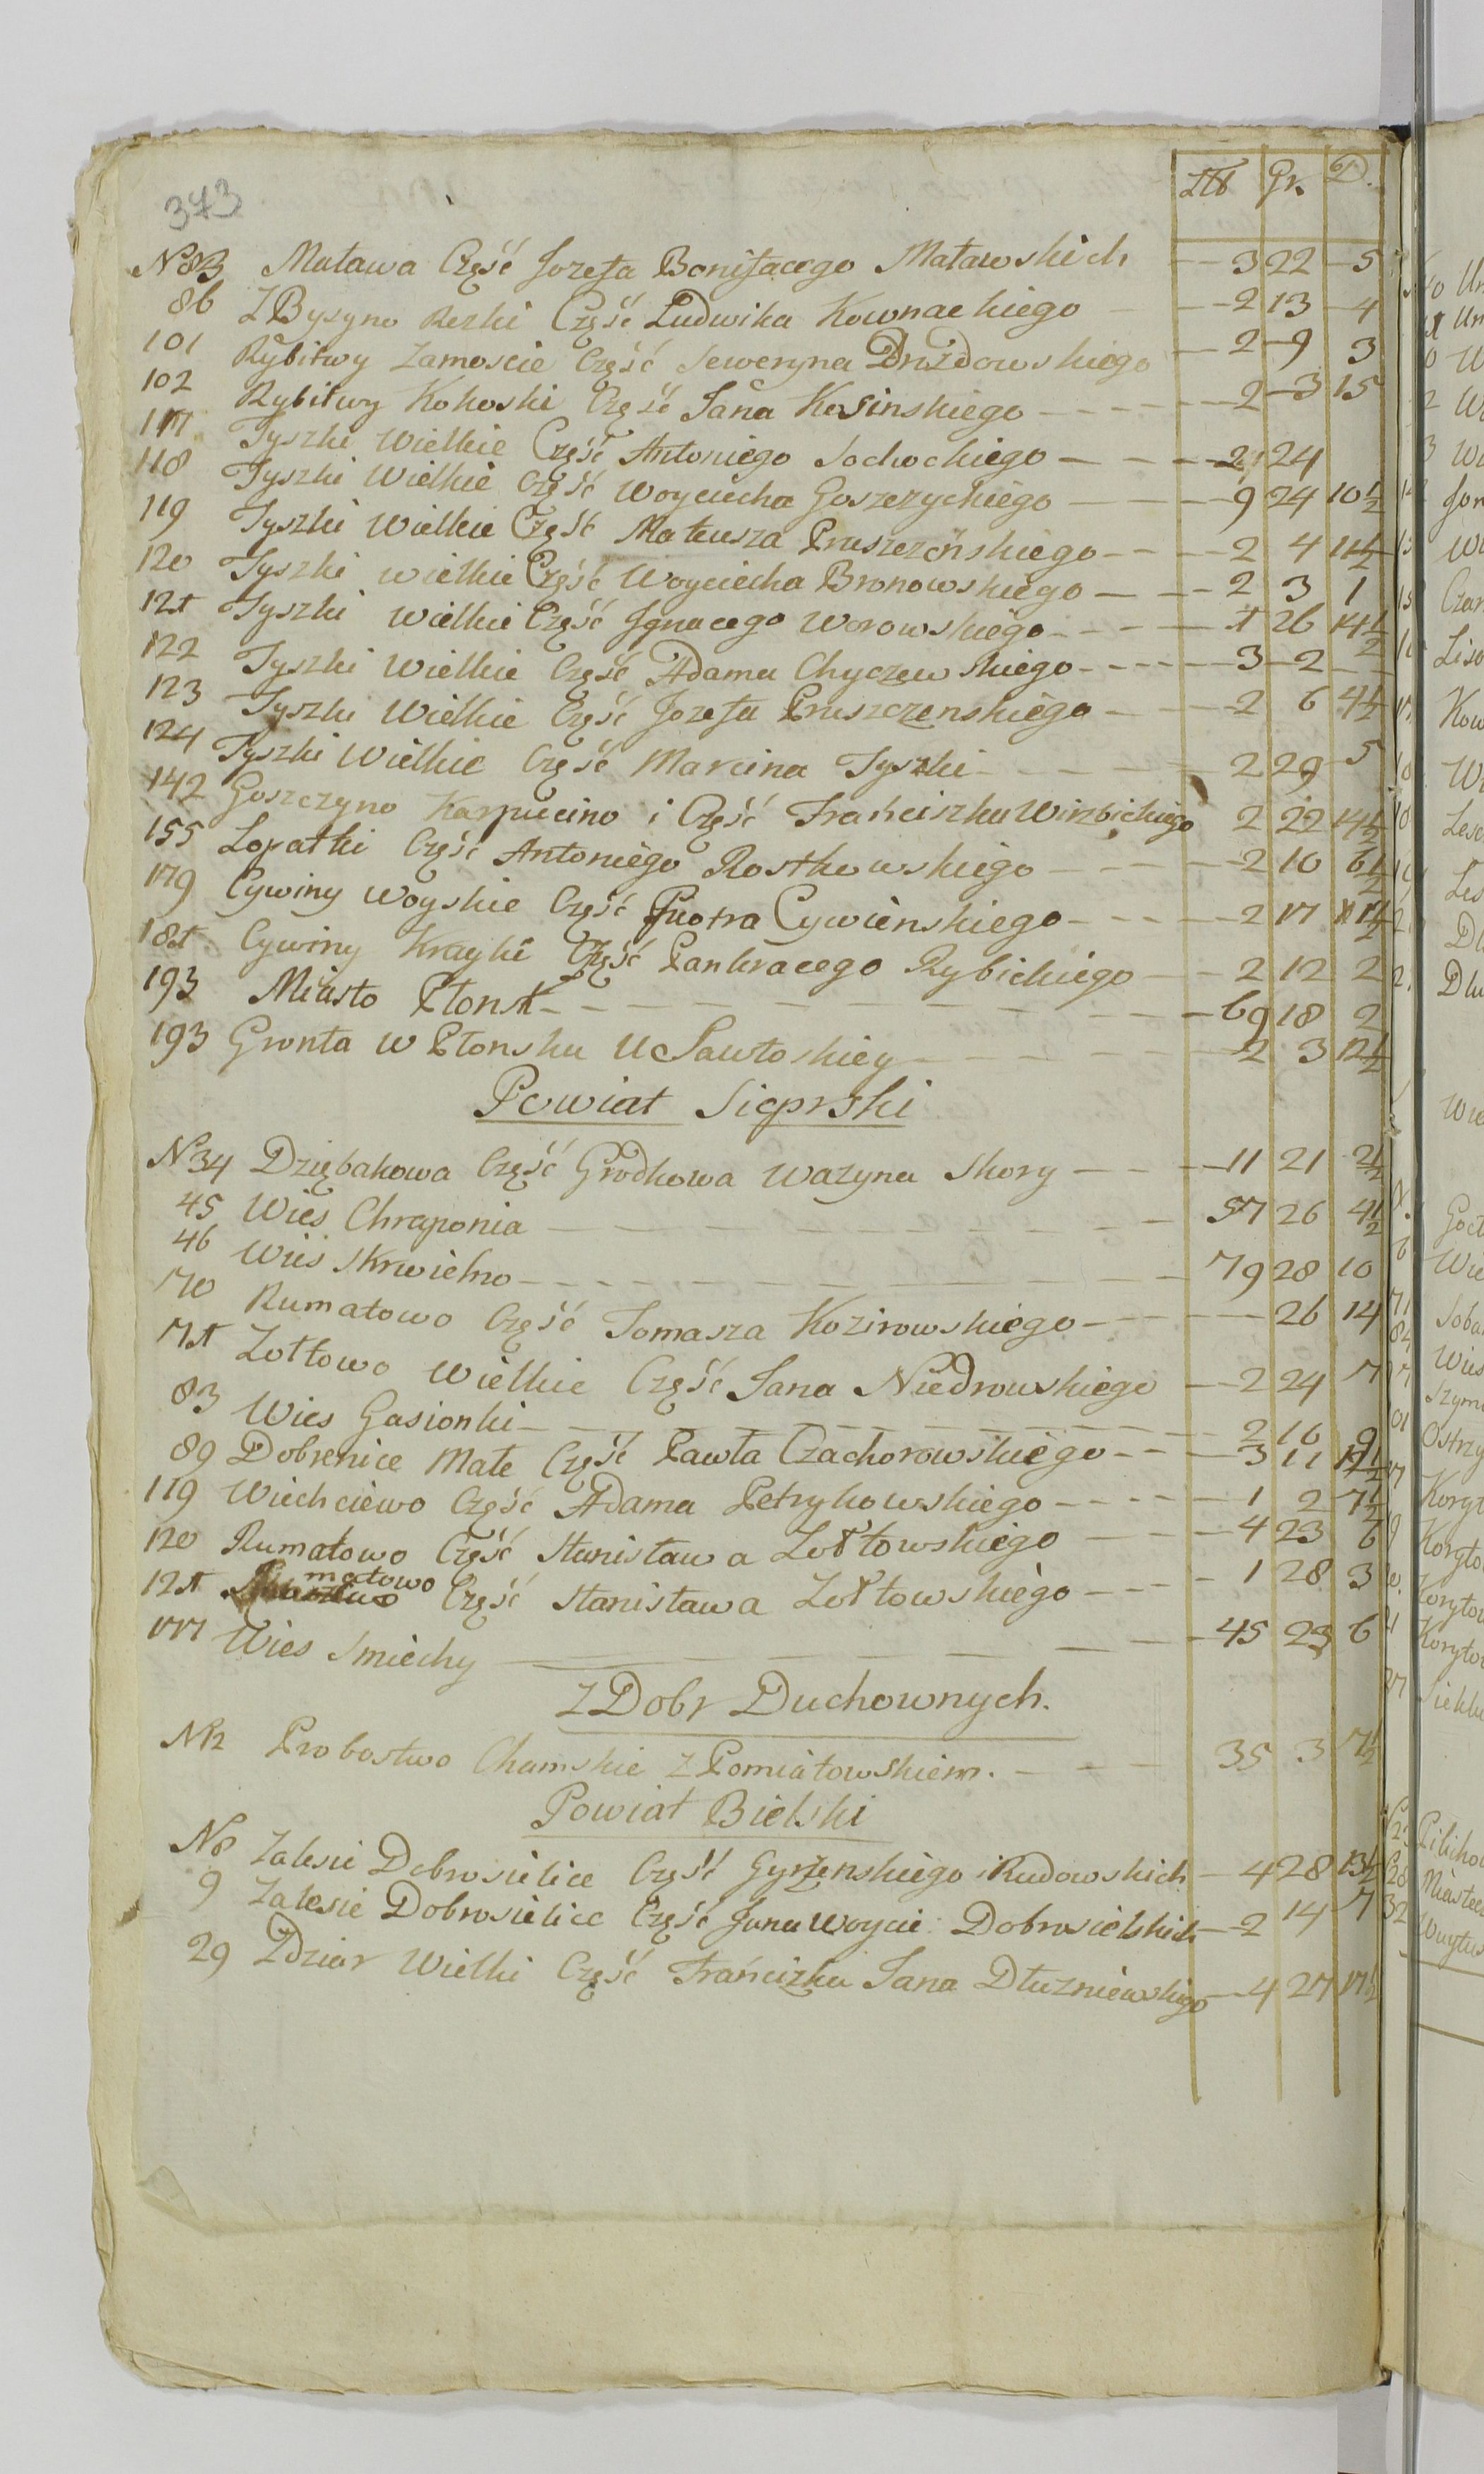 373
Złt Gr. D.
N 83 Matawa Część Jozefa Bonifacego Matawskich 3 22 5
86 Z Bysyno Rezki Część Ludwika Kownackiego 2 13 4
101 Rybitwy Zamoscie Część Seweryna Druzdowskiego 2 9 3
102 Rybitwy Kokoski Część Jana Kosinskiego 2 3 15
117 Tyszki Wielkie Część Antoniego Sochockiego 2 24
118 Tyszki Wielkie Część Woyciecha Goszczyckiego 9 24 10½
119 Tyszki Wielkie Część Mateusza Pruszczenskiego 2 4 11½
120 Tyszki wielkie Część Woyciecha Bronowskiego 2 3 1
121 Tyszki wielkie Część Jgnacego Worowskiego 1 26 14½
122 Tyszki Wielkie Część Adama Chyczewskiego 3 2
123 Tyszki Wielkie Część Jozefa Pruszczenskiego 2 6 4½
124 Tyszki Wielkie Część Marcina Tyszki 2 29 5
142 Goszczyno Karpiecino i Część Franciszka Wirzbickiego 2 22 14½
155 Lopatki Część Antoniego Rostkowskiego 2 10 6½
179 Cywiny Woyskie Część Piotra Cywienskiego 2 17 11½
181 Cywiny Krayki Część Pankracego Rybickiego 2 12 2
193 Miasto Płonsk 69 18 2
193 Gronta w Płonsku Uc Pawłoskiey 2 3 12½
Powiat Sieprski
N 34 Dziębakowa Część Grodkowa Wazyna Skory 11 21 2½
45 Wies Chraponia 57 26 4½
46 Wies Skrwielno 79 28 10
70 Rumatowo Część Tomasza Kozirowskiego 26 14
71 Zołtowo Wielkie Część Jana Niedrowskiego 2 24 7
83 Wies Gasionki 2 16 9
89 Dobrenice Małe Część Pawła Czachorowskiego 3 11 12½
119 Wiechciewo Część Adama Petrykowskiego 1 2 7½
120 Rumatowo Część Stanisława Zołtowskiego 4 23 6
121 matowo Część Stanisława Zołtowskiego 1 28 3
177 Wies Smiechy 45 23 6
Z Dobr Duchownych.
N 12 Probostwo Chamskie z Pomiatowskiem. 35 3 7½
Powiat Bielski
N 8 Zalesie Dobrosielice Część Gyrzenskiego i Rudowskich 4 28 13½
9 Zalesie Dobrosielice Część Jana Woycie: Dobrosielskich 2 14 7
29 Zdziar Wielki Część Franciszka Jana Dłuzniewskiego 4 27 17½